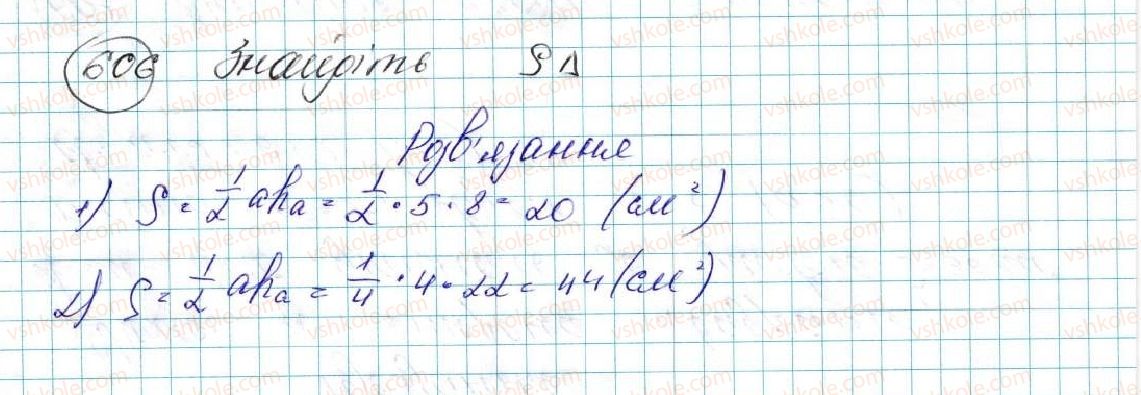 606 Знайдіть S Δ
Розв'язання
1) S = 1/2 ah_a = 1/2 · 5 · 8 = 20 (см²)
2) S = 1/2 ah_a = 1/4 · 4 · 22 = 44 (см²)
vshkole.com